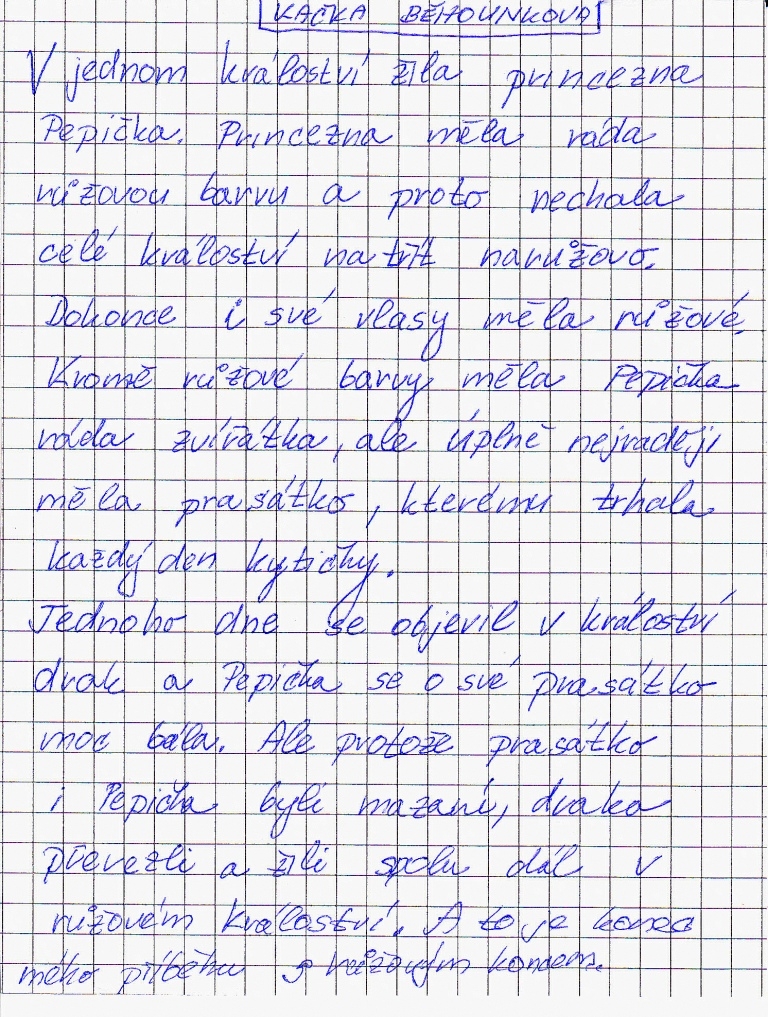 KAČKA BĚHOUNKOVÁ
V jednom králoství žila princezna
Pepička. Princezna měla ráda
růžovou barvu a proto nechala
celé králoství natřít narůžovo.
Dokonce i své vlasy měla růžové.
Kromě růžové barvy měla Pepička
ráda zvířátka, ale úplně nejraději
měla prasátko, kterému trhala
každý den kytičky.
Jednoho dne se objevil v králoství
drak a Pepička se o své prasátko
moc bála. Ale protože prasátko
i Pepička byli mazaní, draka
převezli a žili spolu dál v
růžovém králoství. A to je konec
mého příběhu s růžovým koncem.